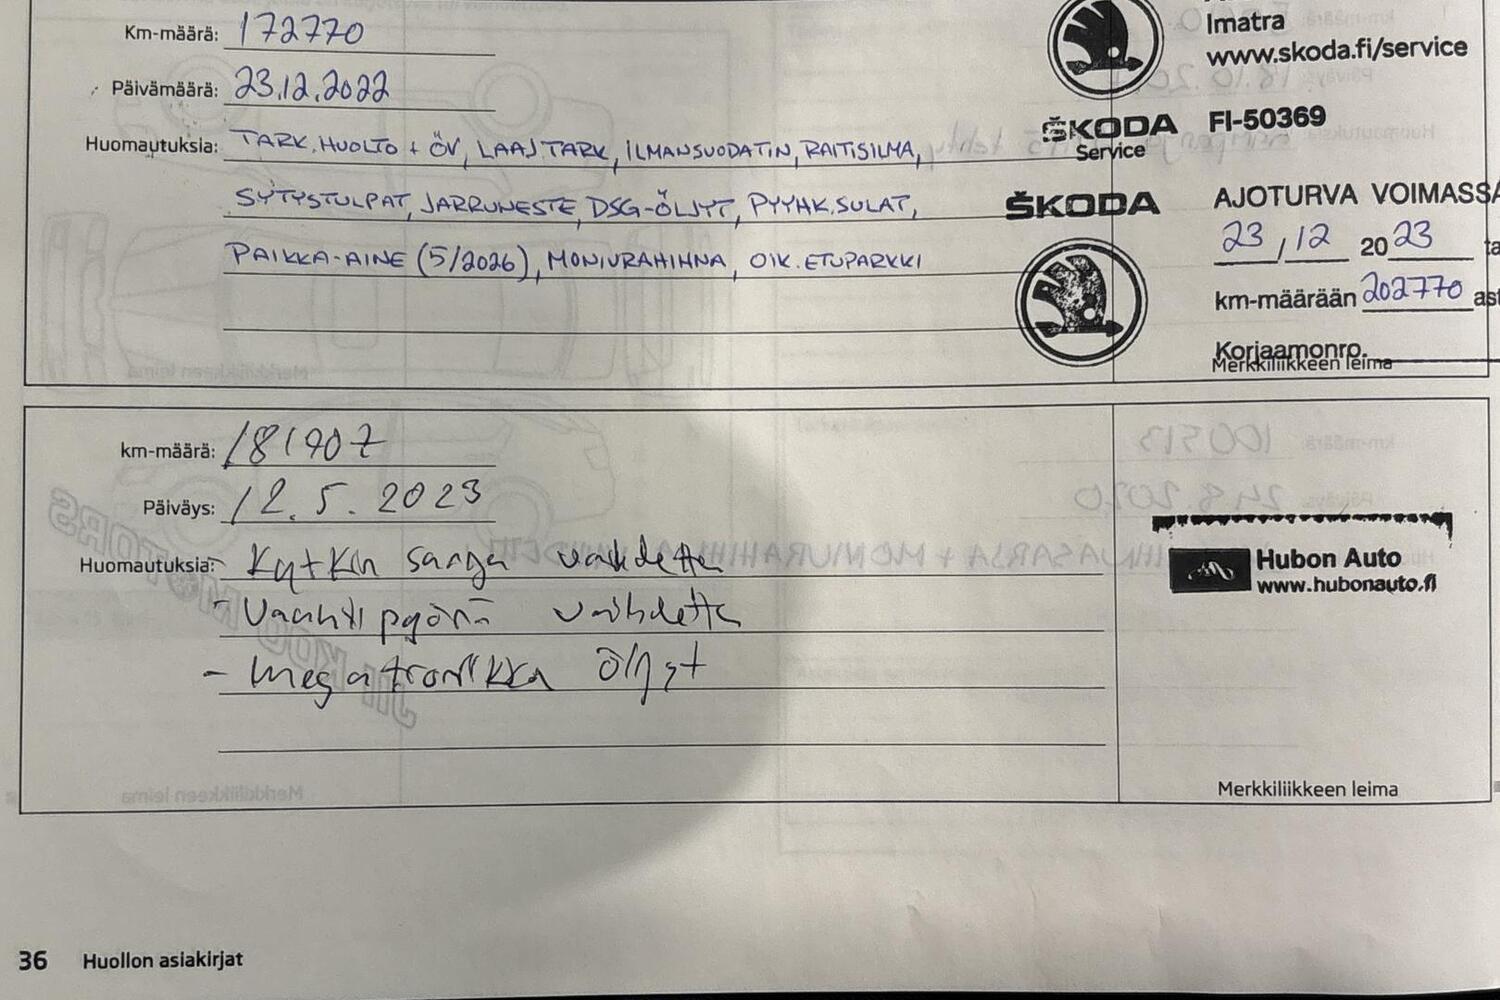 Km-määrä: 172770
Päivämäärä: 23.12.2022
Huomautuksia: TARK.HUOLTO + ÖV, LAAJ.TARK, ILMANSUODATIN, RAITISILMA,
SYTYSTULPAT, JARRUNESTE, DSG-ÖLJYT, PYYHK.SULAT,
PAIKKA-AINE (5/2026), MONIURAHIHNA, OIK.ETUPARKKI
Imatra
www.skoda.fi/service
ŠKODA
Service
FI-50369
ŠKODA
AJOTURVA VOIMASSA
23/12 2023
km-määrään 202770
Korjaamonro.
Merkkiliikkeen leima
km-määrä: 181907
Päiväys: 12.5.2023
Huomautuksia: - Kytkin sarja vaihdettu
- Vauhtipyörä vaihdettu
- megatroniikka öljyt
Hubon Auto
www.hubonauto.fi
Merkkiliikkeen leima
36 Huollon asiakirjat